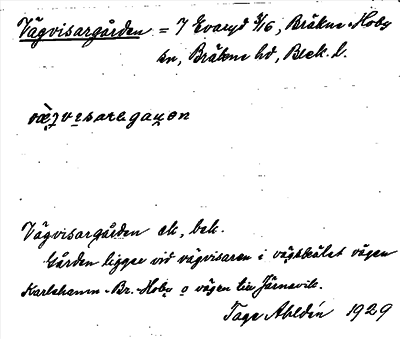 Vägvisargården = 7 Evaryd 3/16, Bräkne-Hoby
sn, Bräkne hd, Blek. l.
væ̀gvesaregaɷen
Vägvisargården ek, bek.
Gården ligger vid vägvisaren i vägskälet vägen
Karlshamn-Br.-Hoby o vägen till Järnavik.
Tage Ahldén 1929